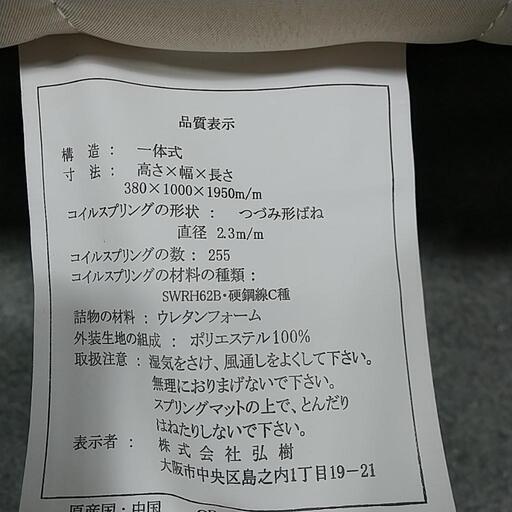 品質表示
構造： 一体式
寸法： 高さ×幅×長さ
380×1000×1950m/m
コイルスプリングの形状： つづみ形ばね
直径 2.3m/m
コイルスプリングの数：255
コイルスプリングの材料の種類：
SWRH62B・硬鋼線C種
詰物の材料：ウレタンフォーム
外装生地の組成： ポリエステル100%
取扱注意：湿気をさけ、風通しをよくして下さい。
無理におりまげないで下さい。
スプリングマットの上で、とんだり
はねたりしないで下さい。
表示者： 株式会社弘樹
大阪市中央区島之内1丁目19-21
原産国：中国